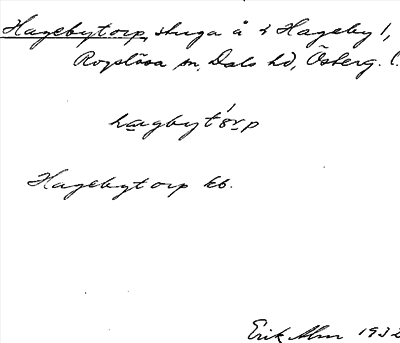 Hagebytorp, stuga å ½ Hageby 1,
Rogslösa sn, Dals hd, Österg. l.
hagbytórp
Hagebytorp kb.
Erik Alm 1932